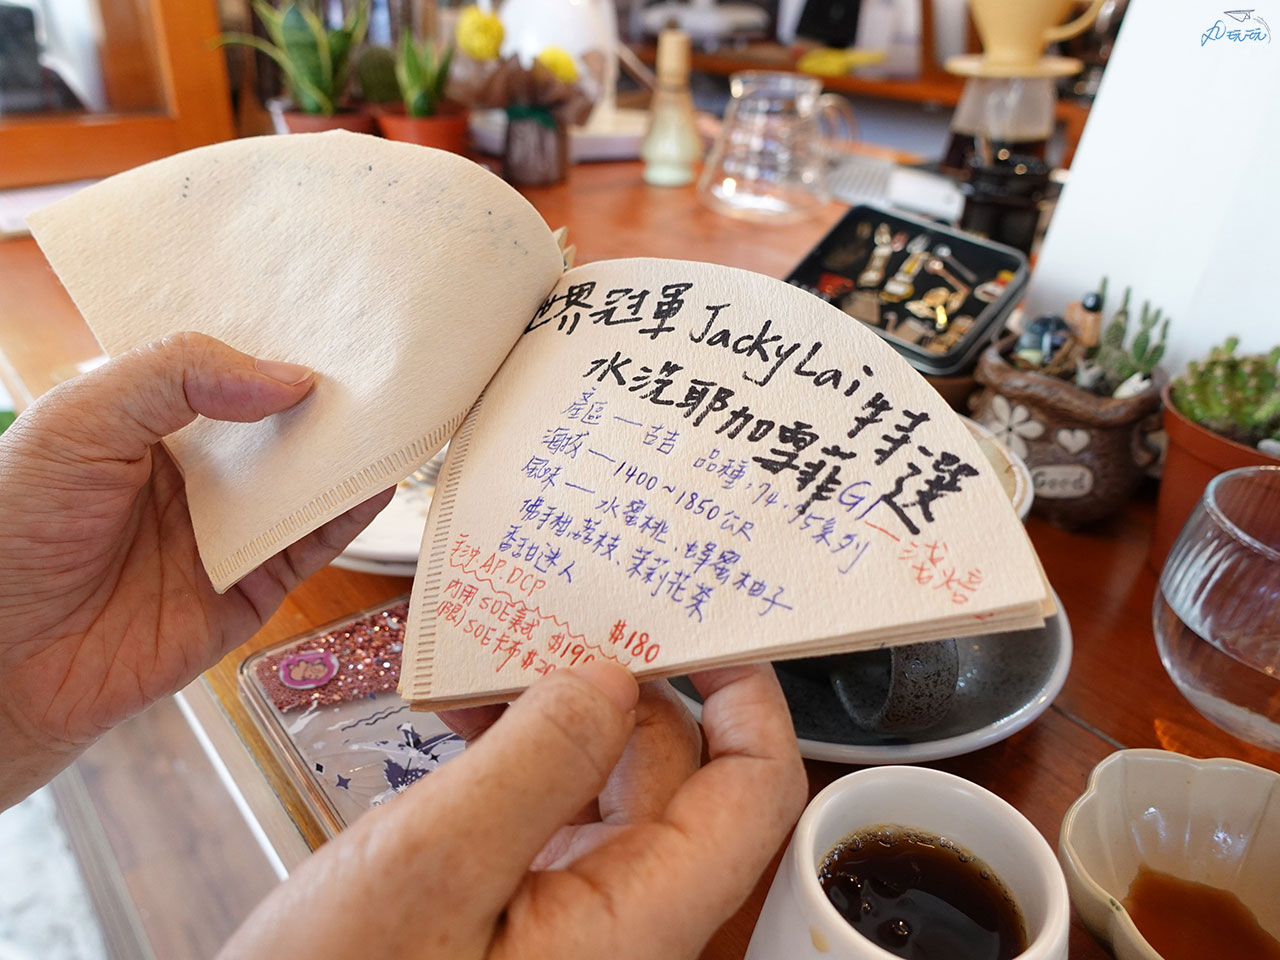 世界冠軍 Jacky Lai 特選
水洗耶加雪菲 G1 - 淺焙
產區 — 吉吉 品種,74.75系列
海拔 — 1400~1850公尺
風味 — 水蜜桃、蜂蜜柚子
佛手柑.荔枝、茉莉花茶
香甜迷人
手沖.AP.DCP $180
內用 SOE美式 $190
(限)SOE卡布
玩玩
Good